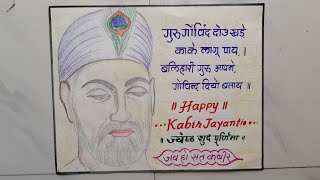 गुरु गोविंद दोउ खडे
काके लागू पाय,।
बलिहारी गुरु आपने,
गोविन्द दियो बताय ।
॥ Happy ॥
...Kabir Jayanti...
। ज्येष्ठ सुद पूर्णिमा ।
जय हो संत कबीर